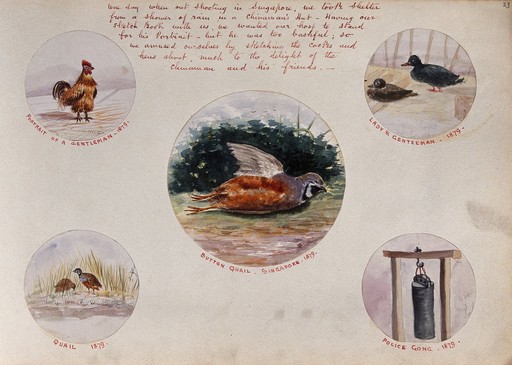 One day when out shooting in Singapore, we took shelter
from a shower of rain in a Chinaman's Hut - Having our
Sketch Book with us, we wanted our host to stand
for his Portrait - but he was too bashful; so
we amused ourselves by sketching the Cocks and
hens about, much to the delight of the
Chinaman and his friends. -
23
PORTRAIT OF A GENTLEMAN - 1879.
LADY & GENTLEMAN - 1879.
BUTTON QUAIL. SINGAPORE. 1879.
QUAIL 1879.
POLICE GONG. 1879.